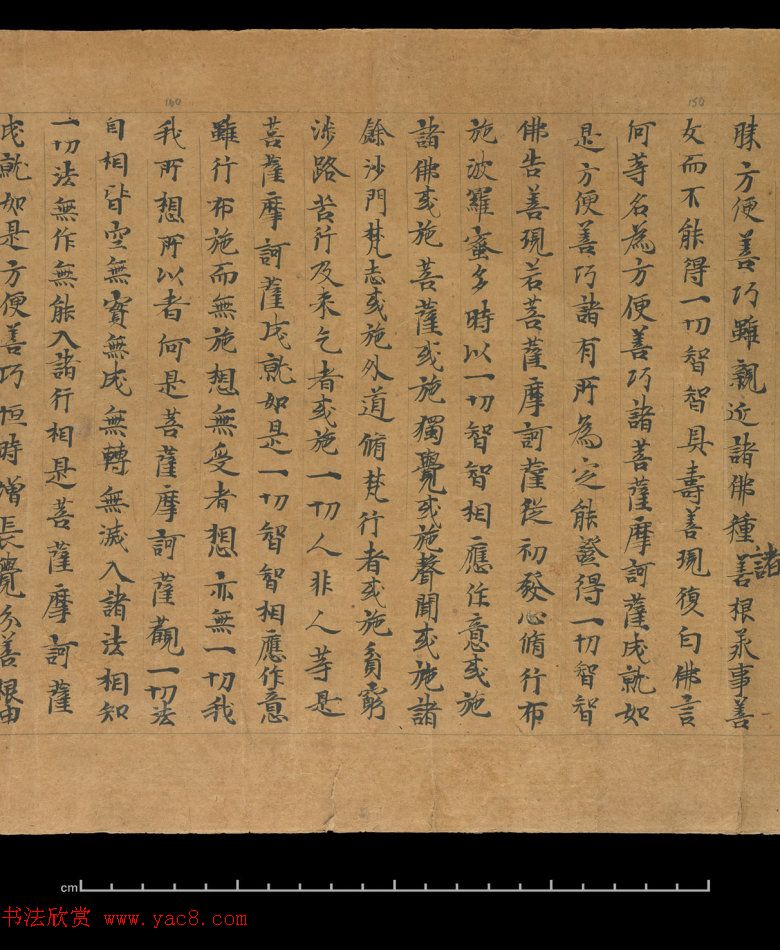 眛方便善巧雖親近諸佛種諸善根承事善
友而不能得一切智智具壽善現復白佛言
何等名為方便善巧諸菩薩摩訶薩成就如
是方便善巧諸有所為定能證得一切智智
佛告善現若菩薩摩訶薩從初發心脩行布
施波羅蜜多時以一切智智相應作意或施
諸佛或施菩薩或施獨覺或施聲聞或施諸
餘沙門梵志或施外道脩梵行者或施貧窮
涉路苦行及來乞者或施一切人非人等是
菩薩摩訶薩成就如是一切智智相應作意
雖行布施而無施想無受者想亦無一切我
我所想所以者何是菩薩摩訶薩觀一切法
自相皆空無實無成無轉無滅入諸法相知
一切法無作無能入諸行相是菩薩摩訶薩
成就如是方便善巧恒時增長殊分善根由
160
150
cm
书法欣赏 www.yac8.com